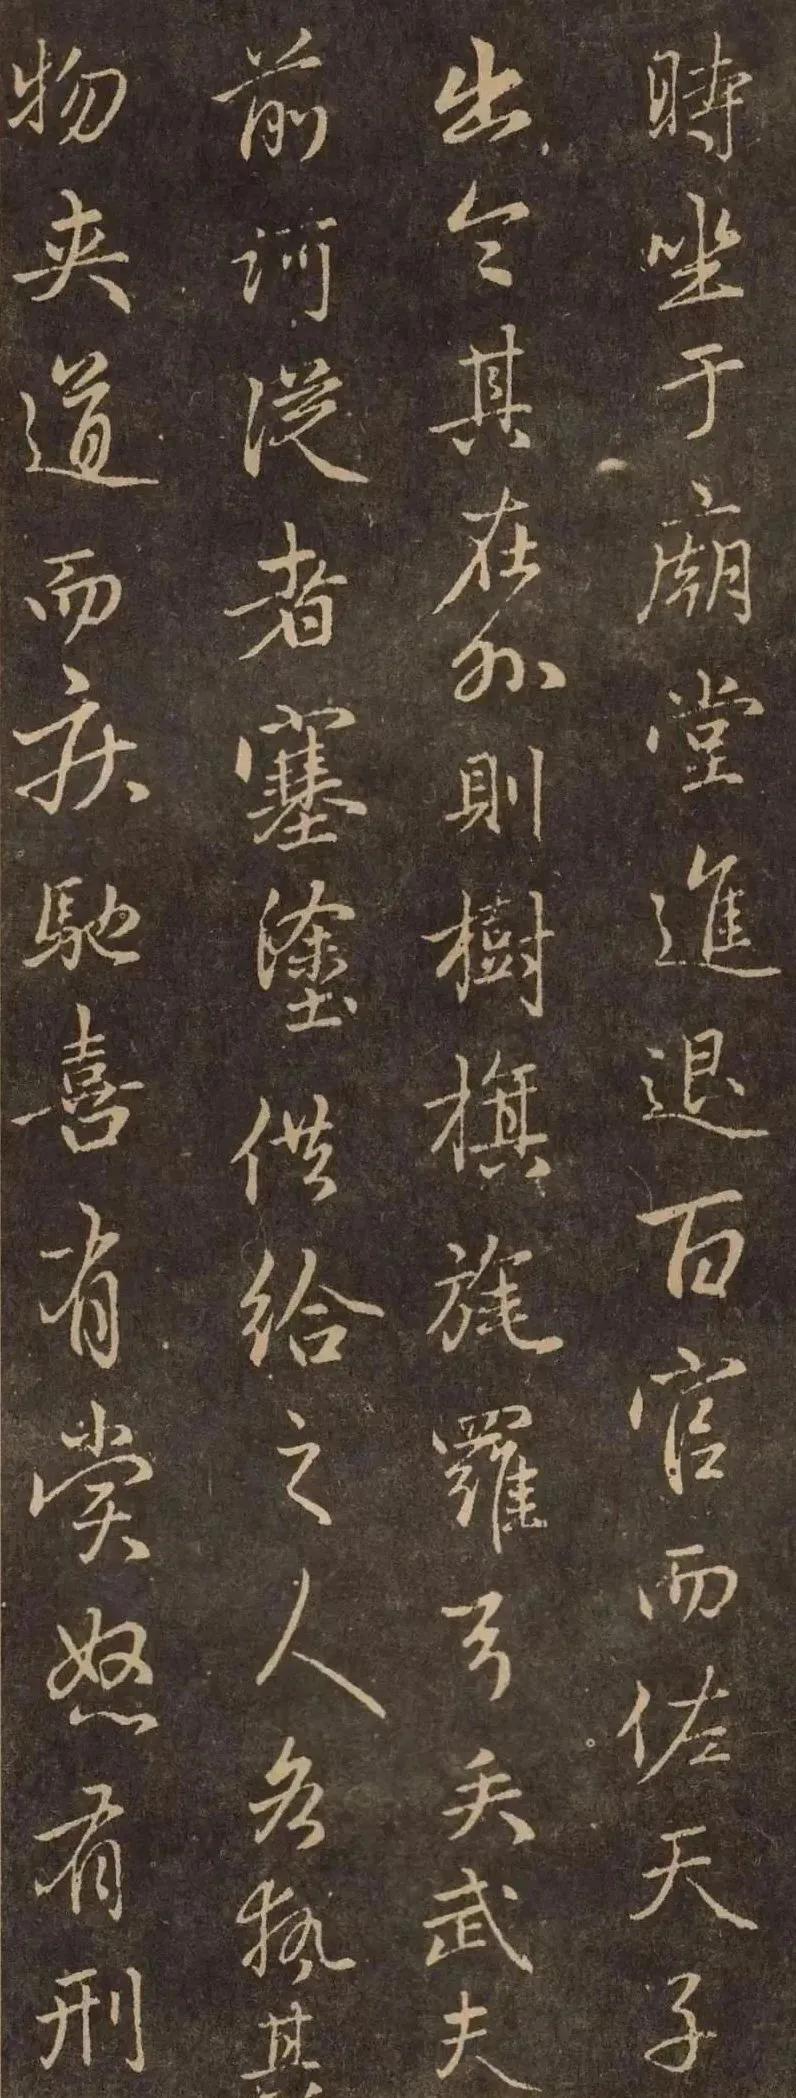 時坐于廟堂進退百官而佐天子
出令其在外則樹旗旄羅弓矢武夫
前訶從者塞塗供給之人各執其
物夾道而疾馳喜有賞怒有刑